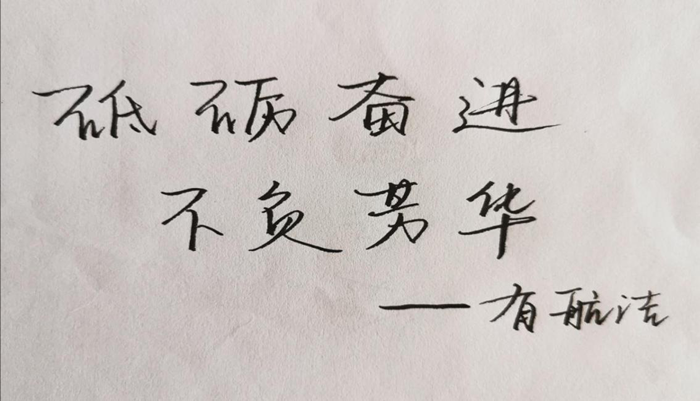 砥砺奋进
不负芳华
——有航洁